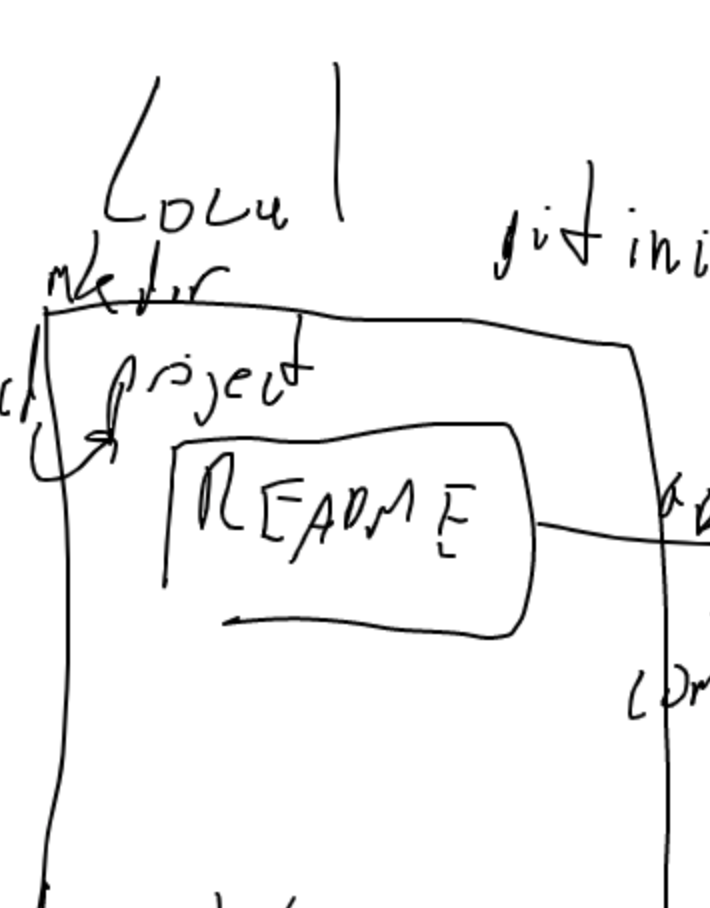 Local
git ini
mkdir
cd project
README
com